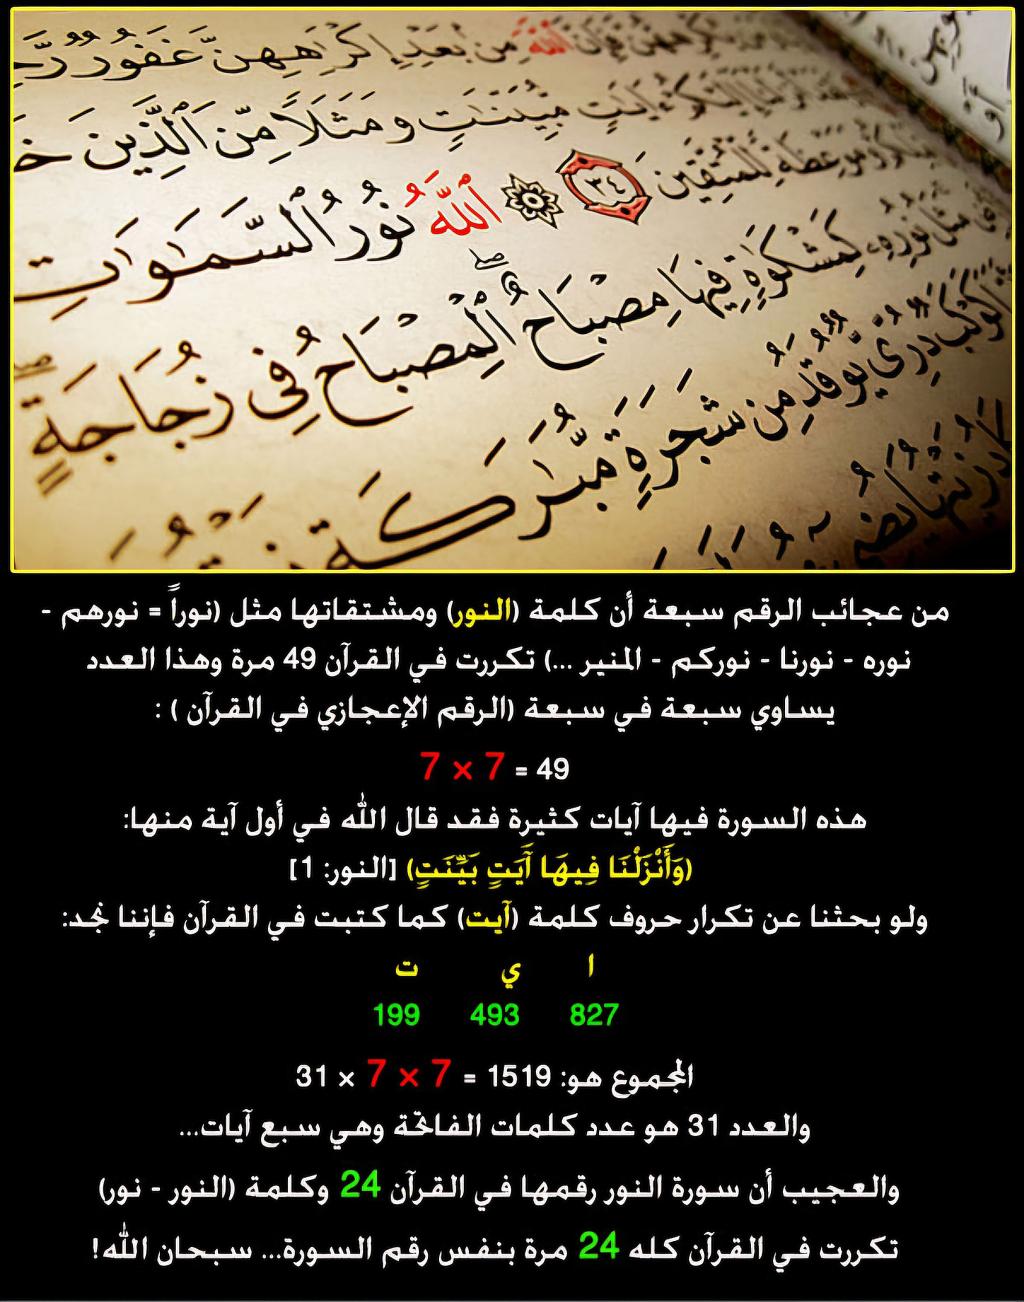 مِنۢ بَعْدِ إِكْرَٰهِهِنَّ غَفُورٌ رَّحِ
ءَايَٰتٍ مُّبَيِّنَٰتٍ وَمَثَلًا مِّنَ ٱلَّذِينَ خَ
لِّلْمُتَّقِينَ ٣٤ ٱللَّهُ نُورُ ٱلسَّمَٰوَٰتِ
مَثَلُ نُورِهِۦ كَمِشْكَوٰةٍ فِيهَا مِصْبَاحٌ ۖ ٱلْمِصْبَاحُ فِى زُجَاجَةٍ
كَوْكَبٌ دُرِّىٌّ يُوقَدُ مِن شَجَرَةٍ مُّبَٰرَكَةٍ
من عجائب الرقم سبعة أن كلمة (النور) ومشتقاتها مثل (نوراً = نورهم -
نوره - نورنا - نوركم - المنير ...) تكررت في القرآن 49 مرة وهذا العدد
يساوي سبعة في سبعة (الرقم الإعجازي في القرآن ) :
7 × 7 = 49
هذه السورة فيها آيات كثيرة فقد قال الله في أول آية منها:
(وَأَنْزَلْنَا فِيهَا آَيَتٍ بَيِّنَتٍ) [النور: 1]
ولو بحثنا عن تكرار حروف كلمة (آيت) كما كتبت في القرآن فإننا نجد:
ا ي ت
827 493 199
المجموع هو: 1519 = 7 × 7 × 31
والعدد 31 هو عدد كلمات الفاتحة وهي سبع آيات...
والعجيب أن سورة النور رقمها في القرآن 24 وكلمة (النور - نور)
تكررت في القرآن كله 24 مرة بنفس رقم السورة... سبحان الله!